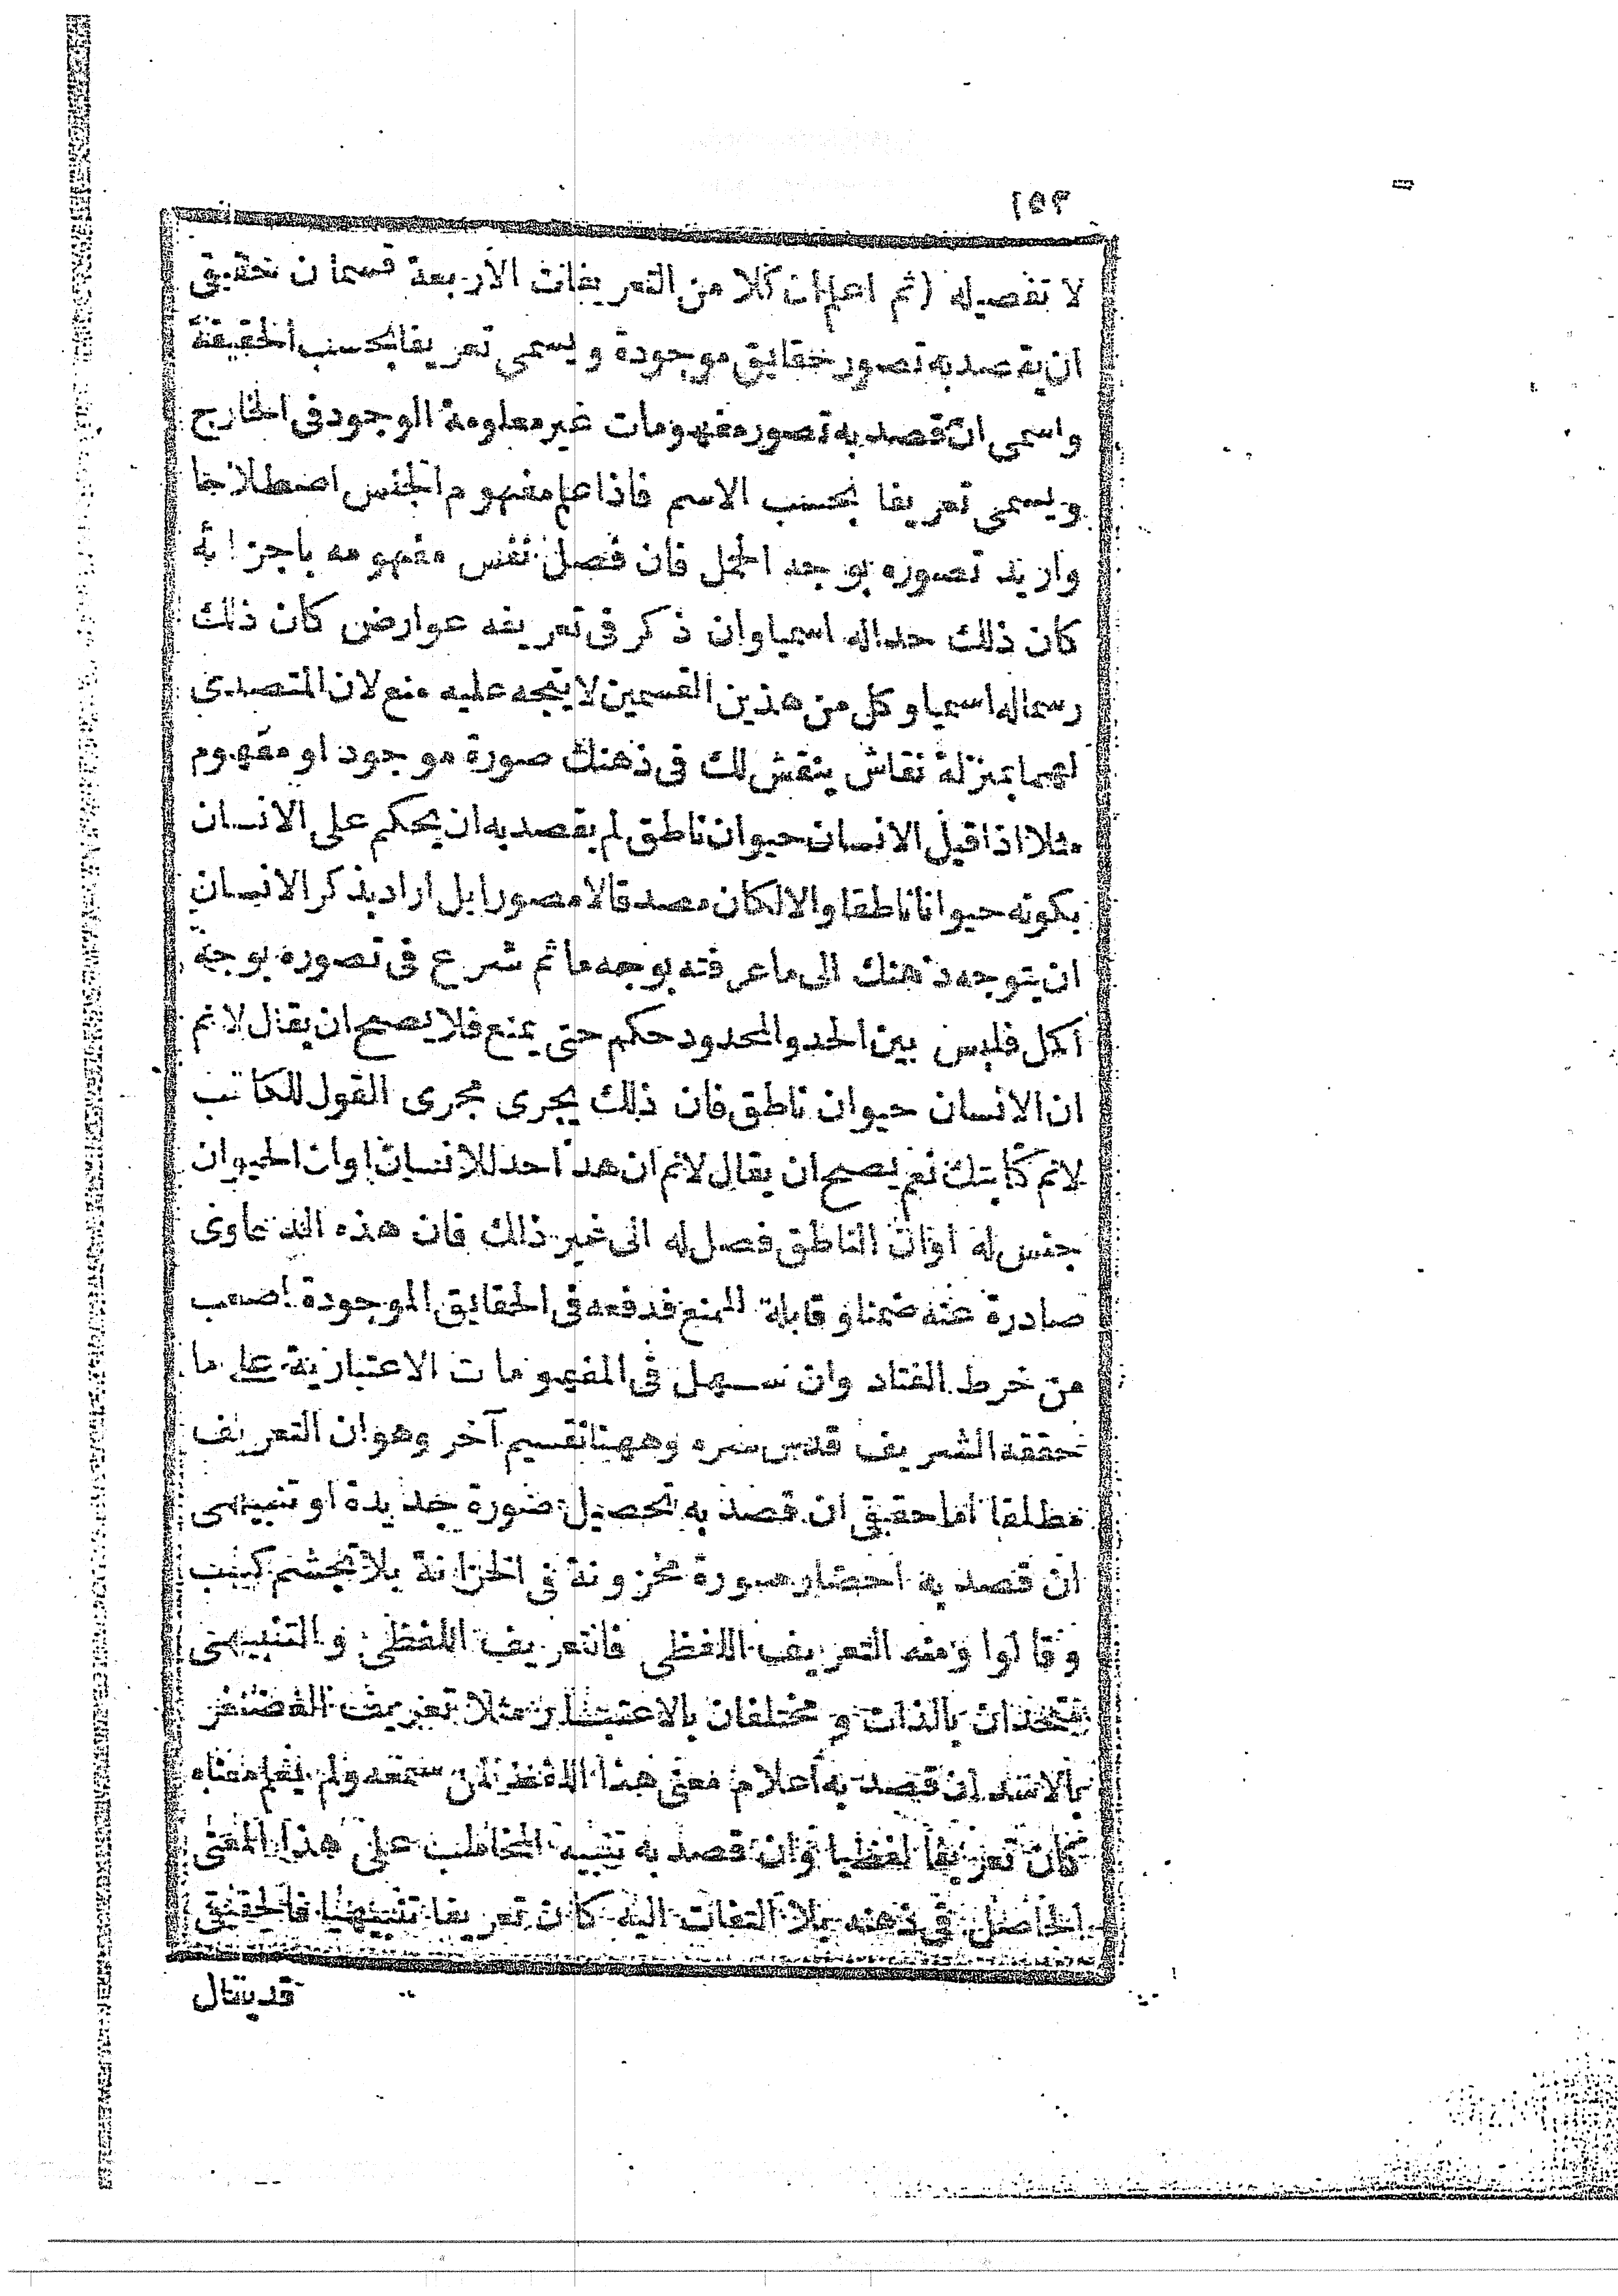 ١٥٣
لا تفصيله (ثم اعلم ان كلا من التعريفات الأربعة قسمان حقيقى
ان يقصد به تصور حقايق موجودة ويسمى تعريفا بحسب الحقيقة
واسمى ان قصد به تصور مفهومات غير معلومة الوجود فى الخارج
ويسمى تعريفا بحسب الاسم فاذا علم مفهوم الجنس اصطلاحا
واريد تصوره بوجه اكمل فان فصل نفس مفهومه باجزائه
كان ذلك حداله اسميا وان ذكر فى تعريفه عوارض كان ذلك
رسماله اسميا وكل من هذين القسمين لا يتجه عليه منع لان المتصدى
لهما بمنزلة نقاش ينقش لك فى ذهنك صورة موجود او مفهوم
مثلا اذا قيل الانسان حيوان ناطق لم يقصد به ان يحكم على الانسان
بكونه حيوانا ناطقا والا لكان مصدقا لا مصورا بل اراد بذكر الانسان
ان يتوجه ذهنك الى ما عرفته بوجه ما ثم شرع فى تصوره بوجه
اكمل فليس بين الحد والمحدود حكم حتى يمنع فلا يصح ان يقال لا نم
ان الانسان حيوان ناطق فان ذلك يجرى مجرى القول للكاتب
لا نم كتابتك نعم يصح ان يقال لا نم ان هذا حد للانسان او ان الحيوان
جنس له او ان الناطق فصل له الى غير ذلك فان هذه الدعاوى
صادرة عنه ضمنا وقابلة للمنع فدفعه فى الحقايق الموجودة اصعب
من خرط القتاد وان سهل فى المفهومات الاعتبارية على ما
حققه الشريف قدس سره وههنا تقسيم آخر وهو ان التعريف
مطلقا اما حقيقى ان قصد به تحصيل صورة جديدة او تنبيهى
ان قصد به احضار صورة مخزونة فى الخزانة بلا تجشم كسب
وقالوا ومنه التعريف اللفظى فالتعريف اللفظى والتنبيهى
متحدان بالذات ومختلفان بالاعتبار مثلا تعريف الغضنفر
بالاسد ان قصد به اعلام معنى هذا اللفظ لمن سمعه ولم يعلم معناه
كان تعريفا لفظيا وان قصد به تنبيه المخاطب على هذا المعنى
الحاصل فى ذهنه بلا التفات اليه كان تعريفا تنبيهيا فالحقيقى
قد يقال